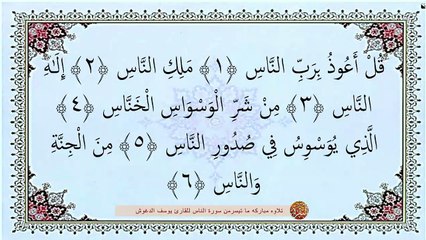 قُلْ أَعُوذُ بِرَبِّ النَّاسِ ﴿١﴾ مَلِكِ النَّاسِ ﴿٢﴾ إِلَهِ
النَّاسِ ﴿٣﴾ مِنْ شَرِّ الْوَسْوَاسِ الْخَنَّاسِ ﴿٤﴾
الَّذِي يُوَسْوِسُ فِي صُدُورِ النَّاسِ ﴿٥﴾ مِنَ الْجِنَّةِ
وَالنَّاسِ ﴿٦﴾
تلاوه مباركه ما تيسرمن سورة الناس للقارئ يوسف الدغوش